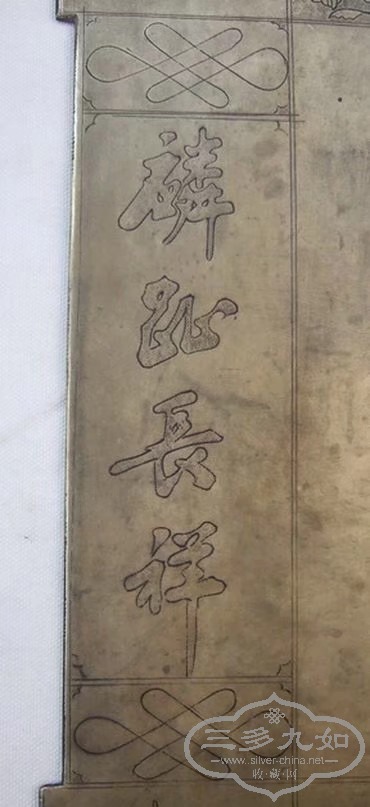 麟趾長祥
三多九如
www.silver-china.net
收·藏·网